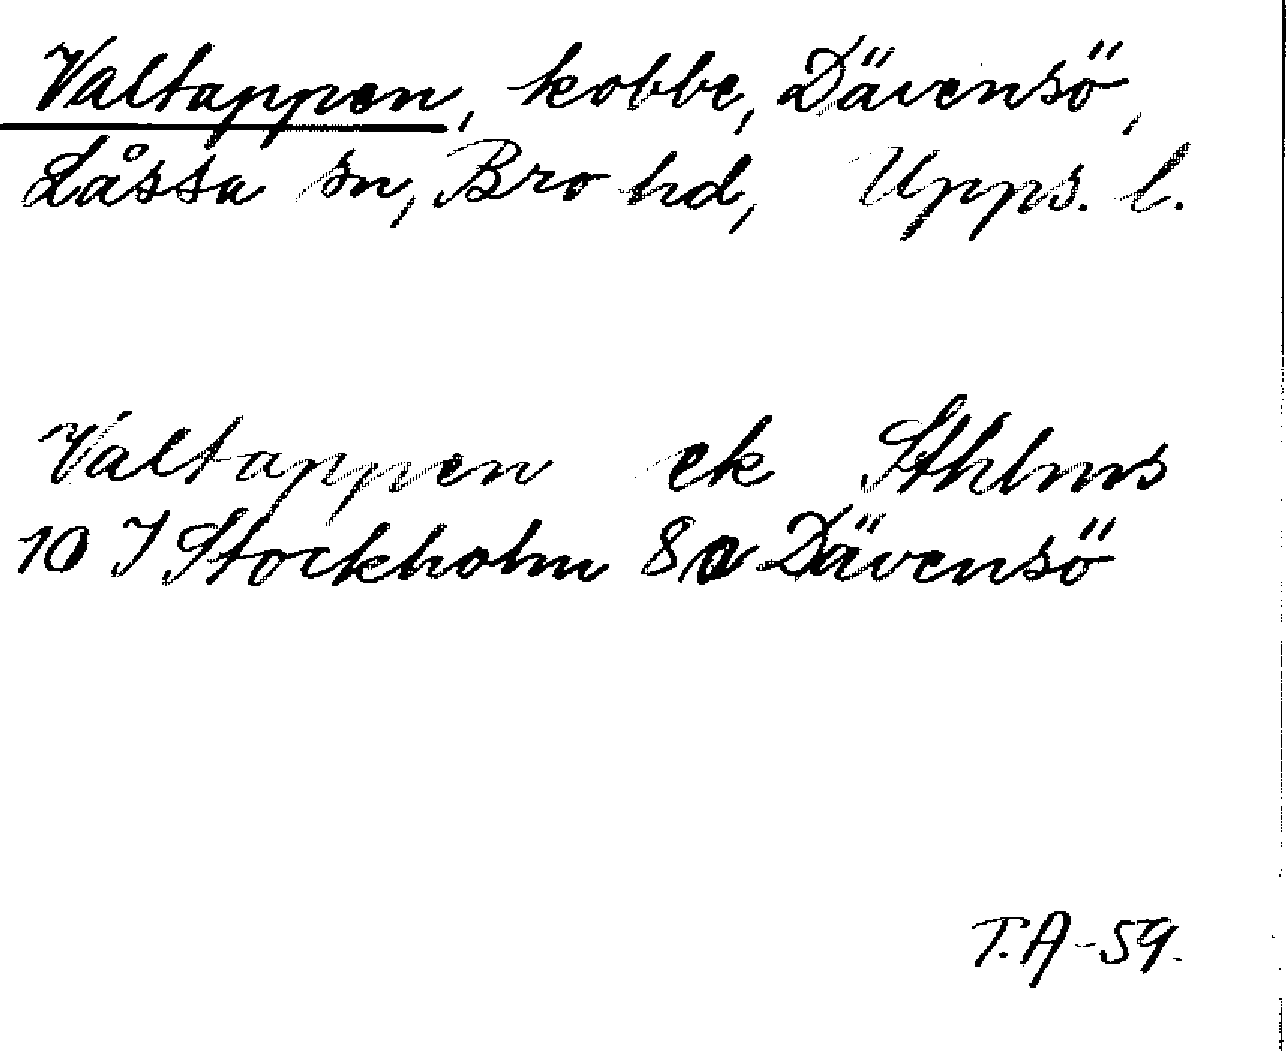 Valtappen, kobbe, Dävensö,
Låssa sn, Bro hd, Upps. l.
Valtappen ek Sthlms
10 I Stockholm 8a Dävensö
T.A-59.